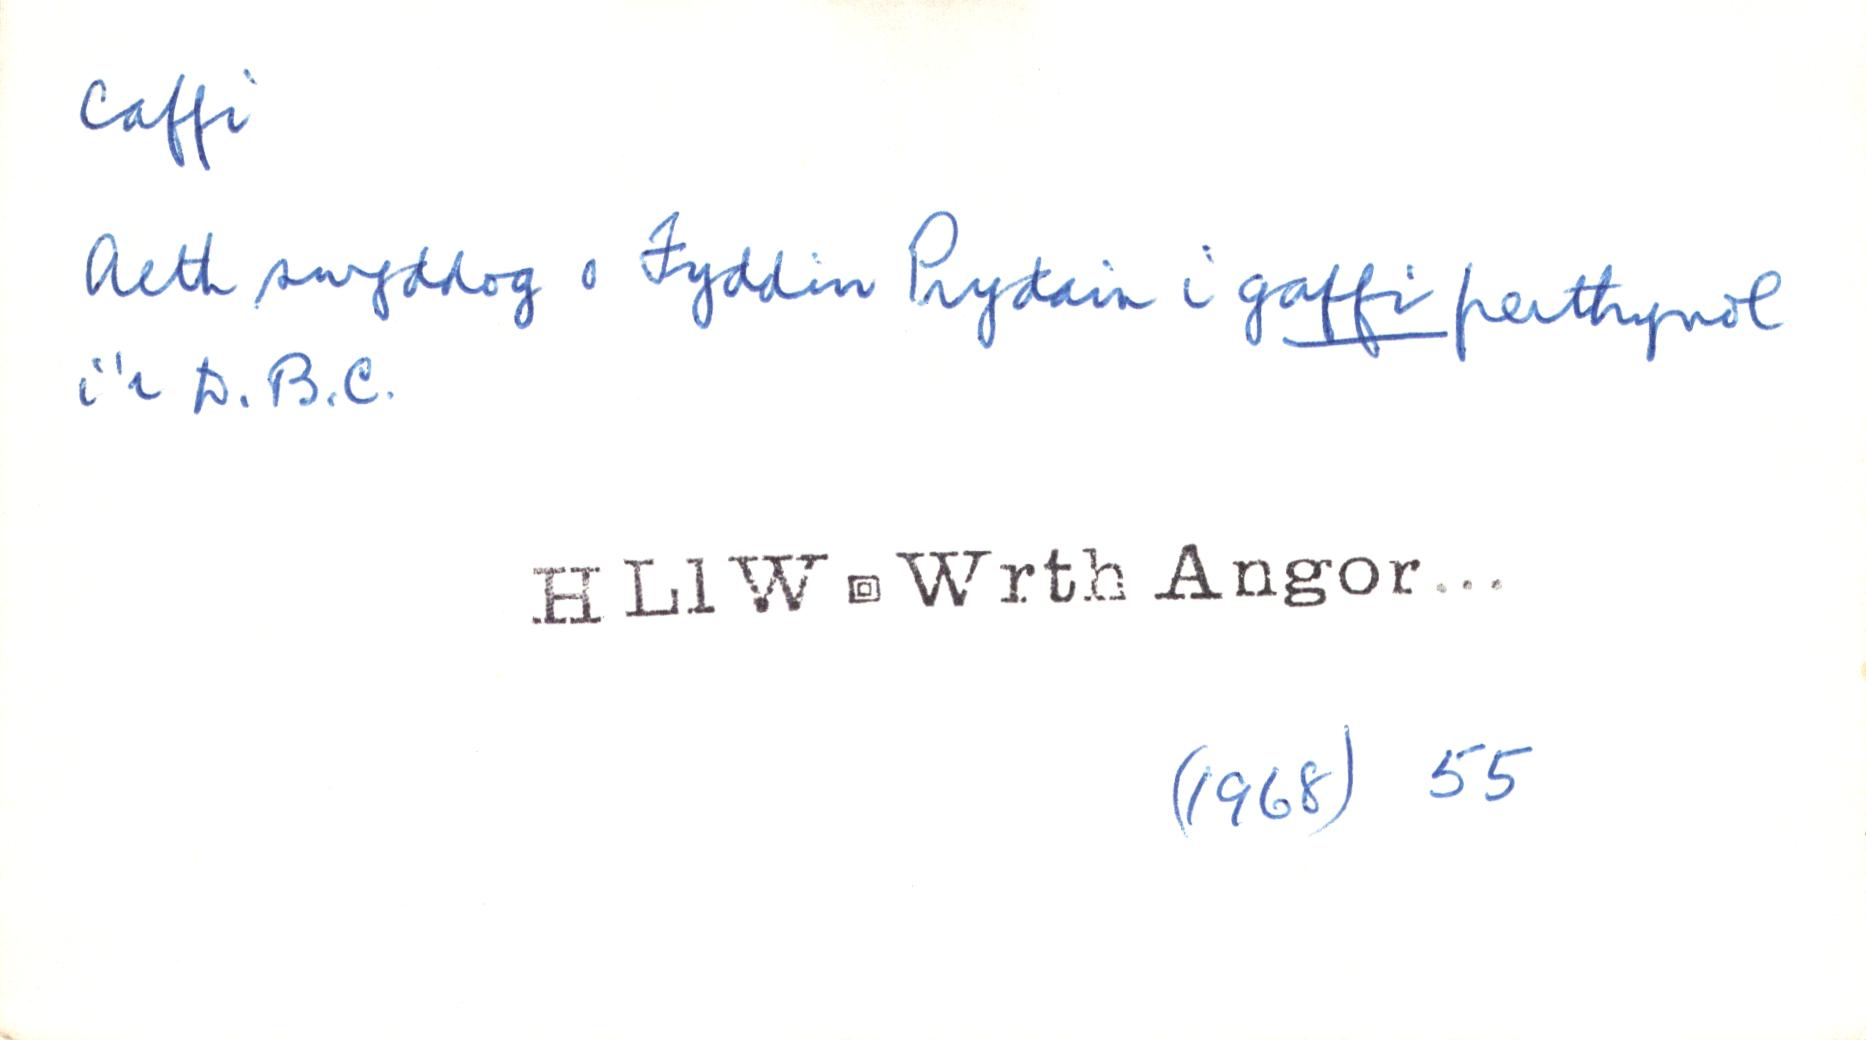 Caffi
Aeth swyddog o Fyddin Prydain i gaffi perthynol
i'r D.B.C.
H Ll W Wrth Angor...
(1968) 55